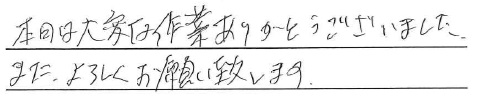 本日は大変な作業ありがとうございました。
また、よろしくお願い致します。